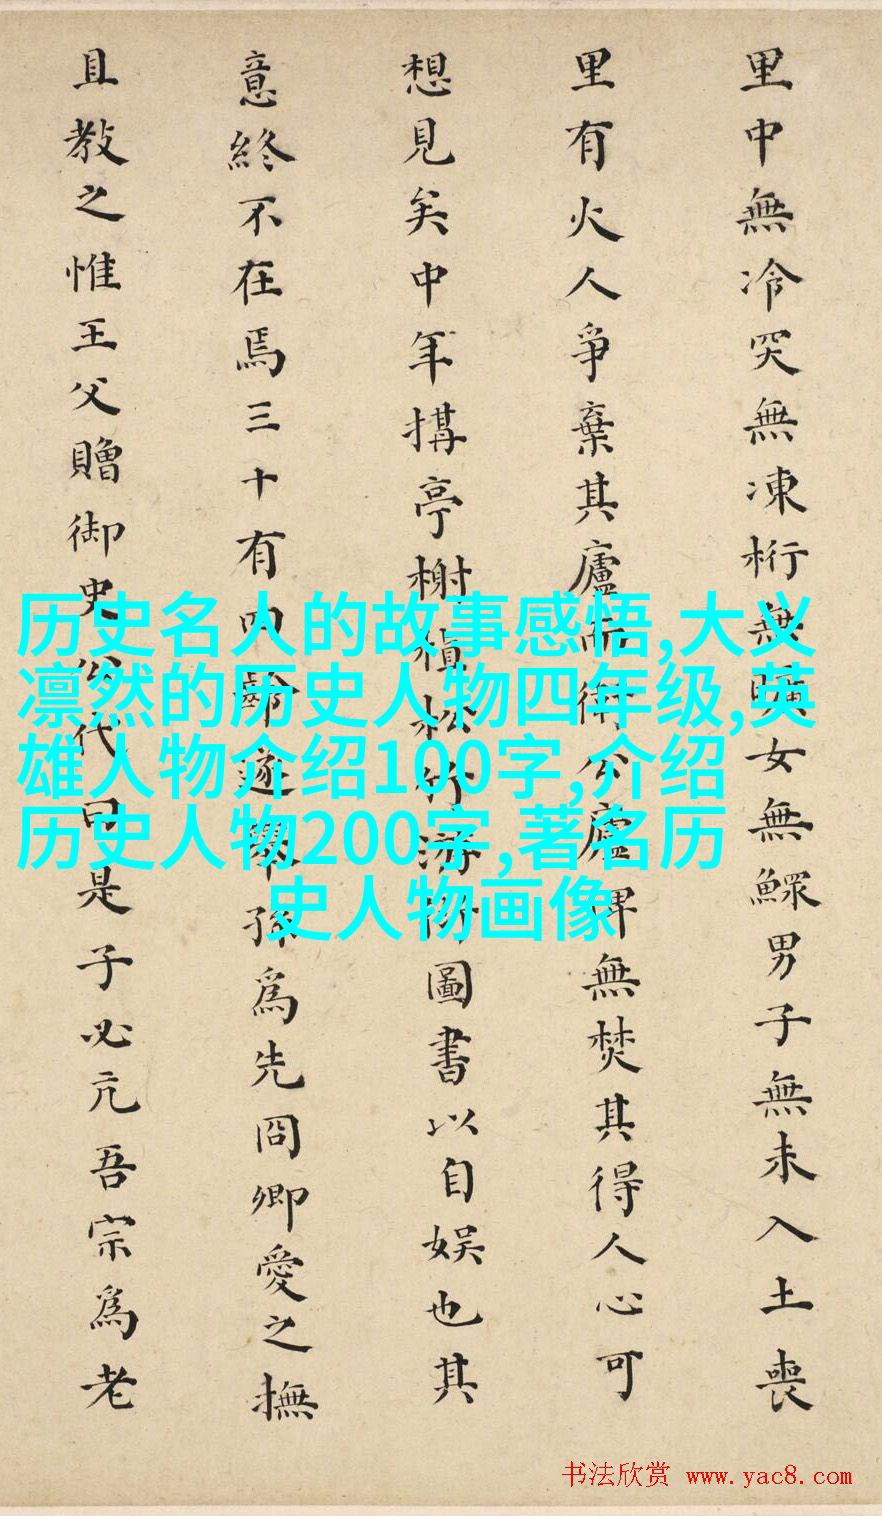 里中無冷突無凍桁無曠女無鰥男子無未入土喪
里有火人爭棄其廬而衛公廬俾無焚其得人心可
想見矣中年搆亭榭植松竹圖書以自娛也其
意終不在焉三十有四齡遂舉孫爲先冏卿愛之撫
且教之惟王父贈御史公代曰是子必亢吾宗爲老
历史名人的故事感悟,大义
凛然的历史人物四年级,英
雄人物介绍100字,介绍
历史人物200字,著名历
史人物画像
书法欣赏 www.yac8.com